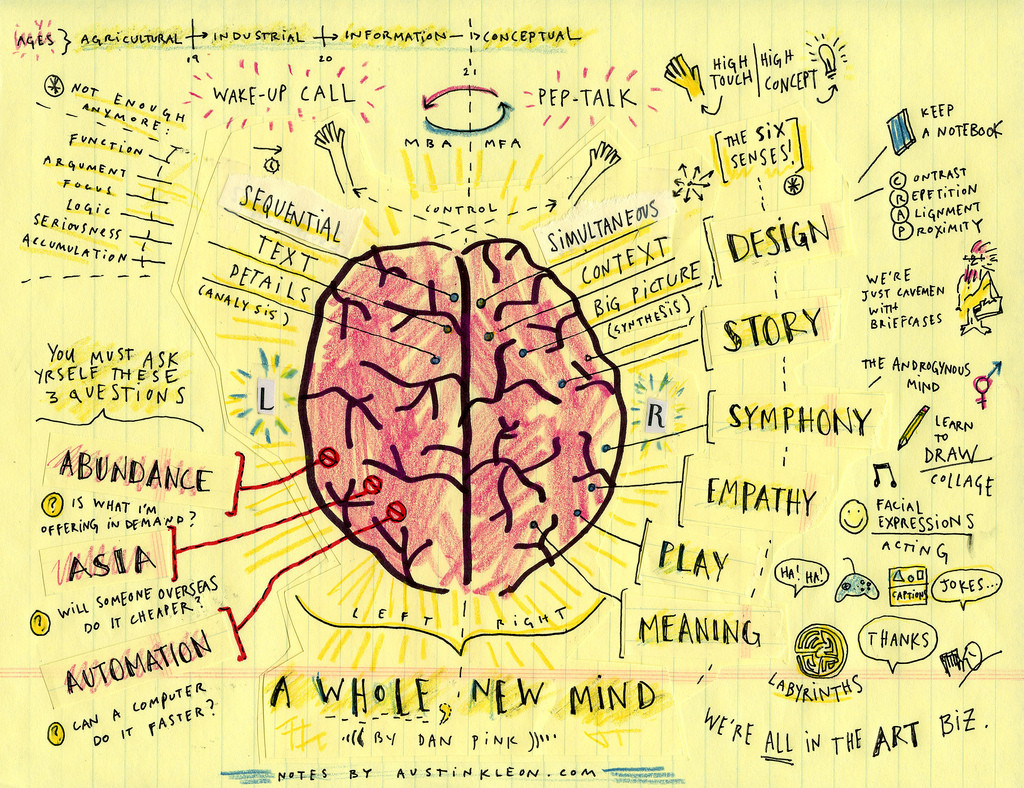 AGES } AGRICULTURAL → INDUSTRIAL → INFORMATION → CONCEPTUAL
19 20 21
WAKE-UP CALL
PEP-TALK
MBA MFA
HIGH TOUCH
HIGH CONCEPT
NOT ENOUGH
ANYMORE:
FUNCTION
ARGUMENT
FOCUS
LOGIC
SERIOUSNESS
ACCUMULATION
CONTROL
SEQUENTIAL
TEXT
DETAILS
(ANALYSIS)
SIMULTANEOUS
CONTEXT
BIG PICTURE
(SYNTHESIS)
L
R
LEFT RIGHT
YOU MUST ASK
YRSELF THESE
3 QUESTIONS
ABUNDANCE
? IS WHAT I'M
OFFERING IN DEMAND?
ASIA
? WILL SOMEONE OVERSEAS
DO IT CHEAPER?
AUTOMATION
? CAN A COMPUTER
DO IT FASTER?
[THE SIX
SENSES!]
DESIGN
STORY
SYMPHONY
EMPATHY
PLAY
MEANING
KEEP
A NOTEBOOK
CONTRAST
REPETITION
ALIGNMENT
PROXIMITY
WE'RE
JUST CAVEMEN
WITH
BRIEFCASES
THE ANDROGYNOUS
MIND
LEARN
TO
DRAW
COLLAGE
FACIAL
EXPRESSIONS
ACTING
HA! HA!
CAPTIONS
JOKES...
LABYRINTHS
THANKS
WE'RE ALL IN THE ART BIZ.
A WHOLE NEW MIND
BY DAN PINK
NOTES BY AUSTINKLEON.COM